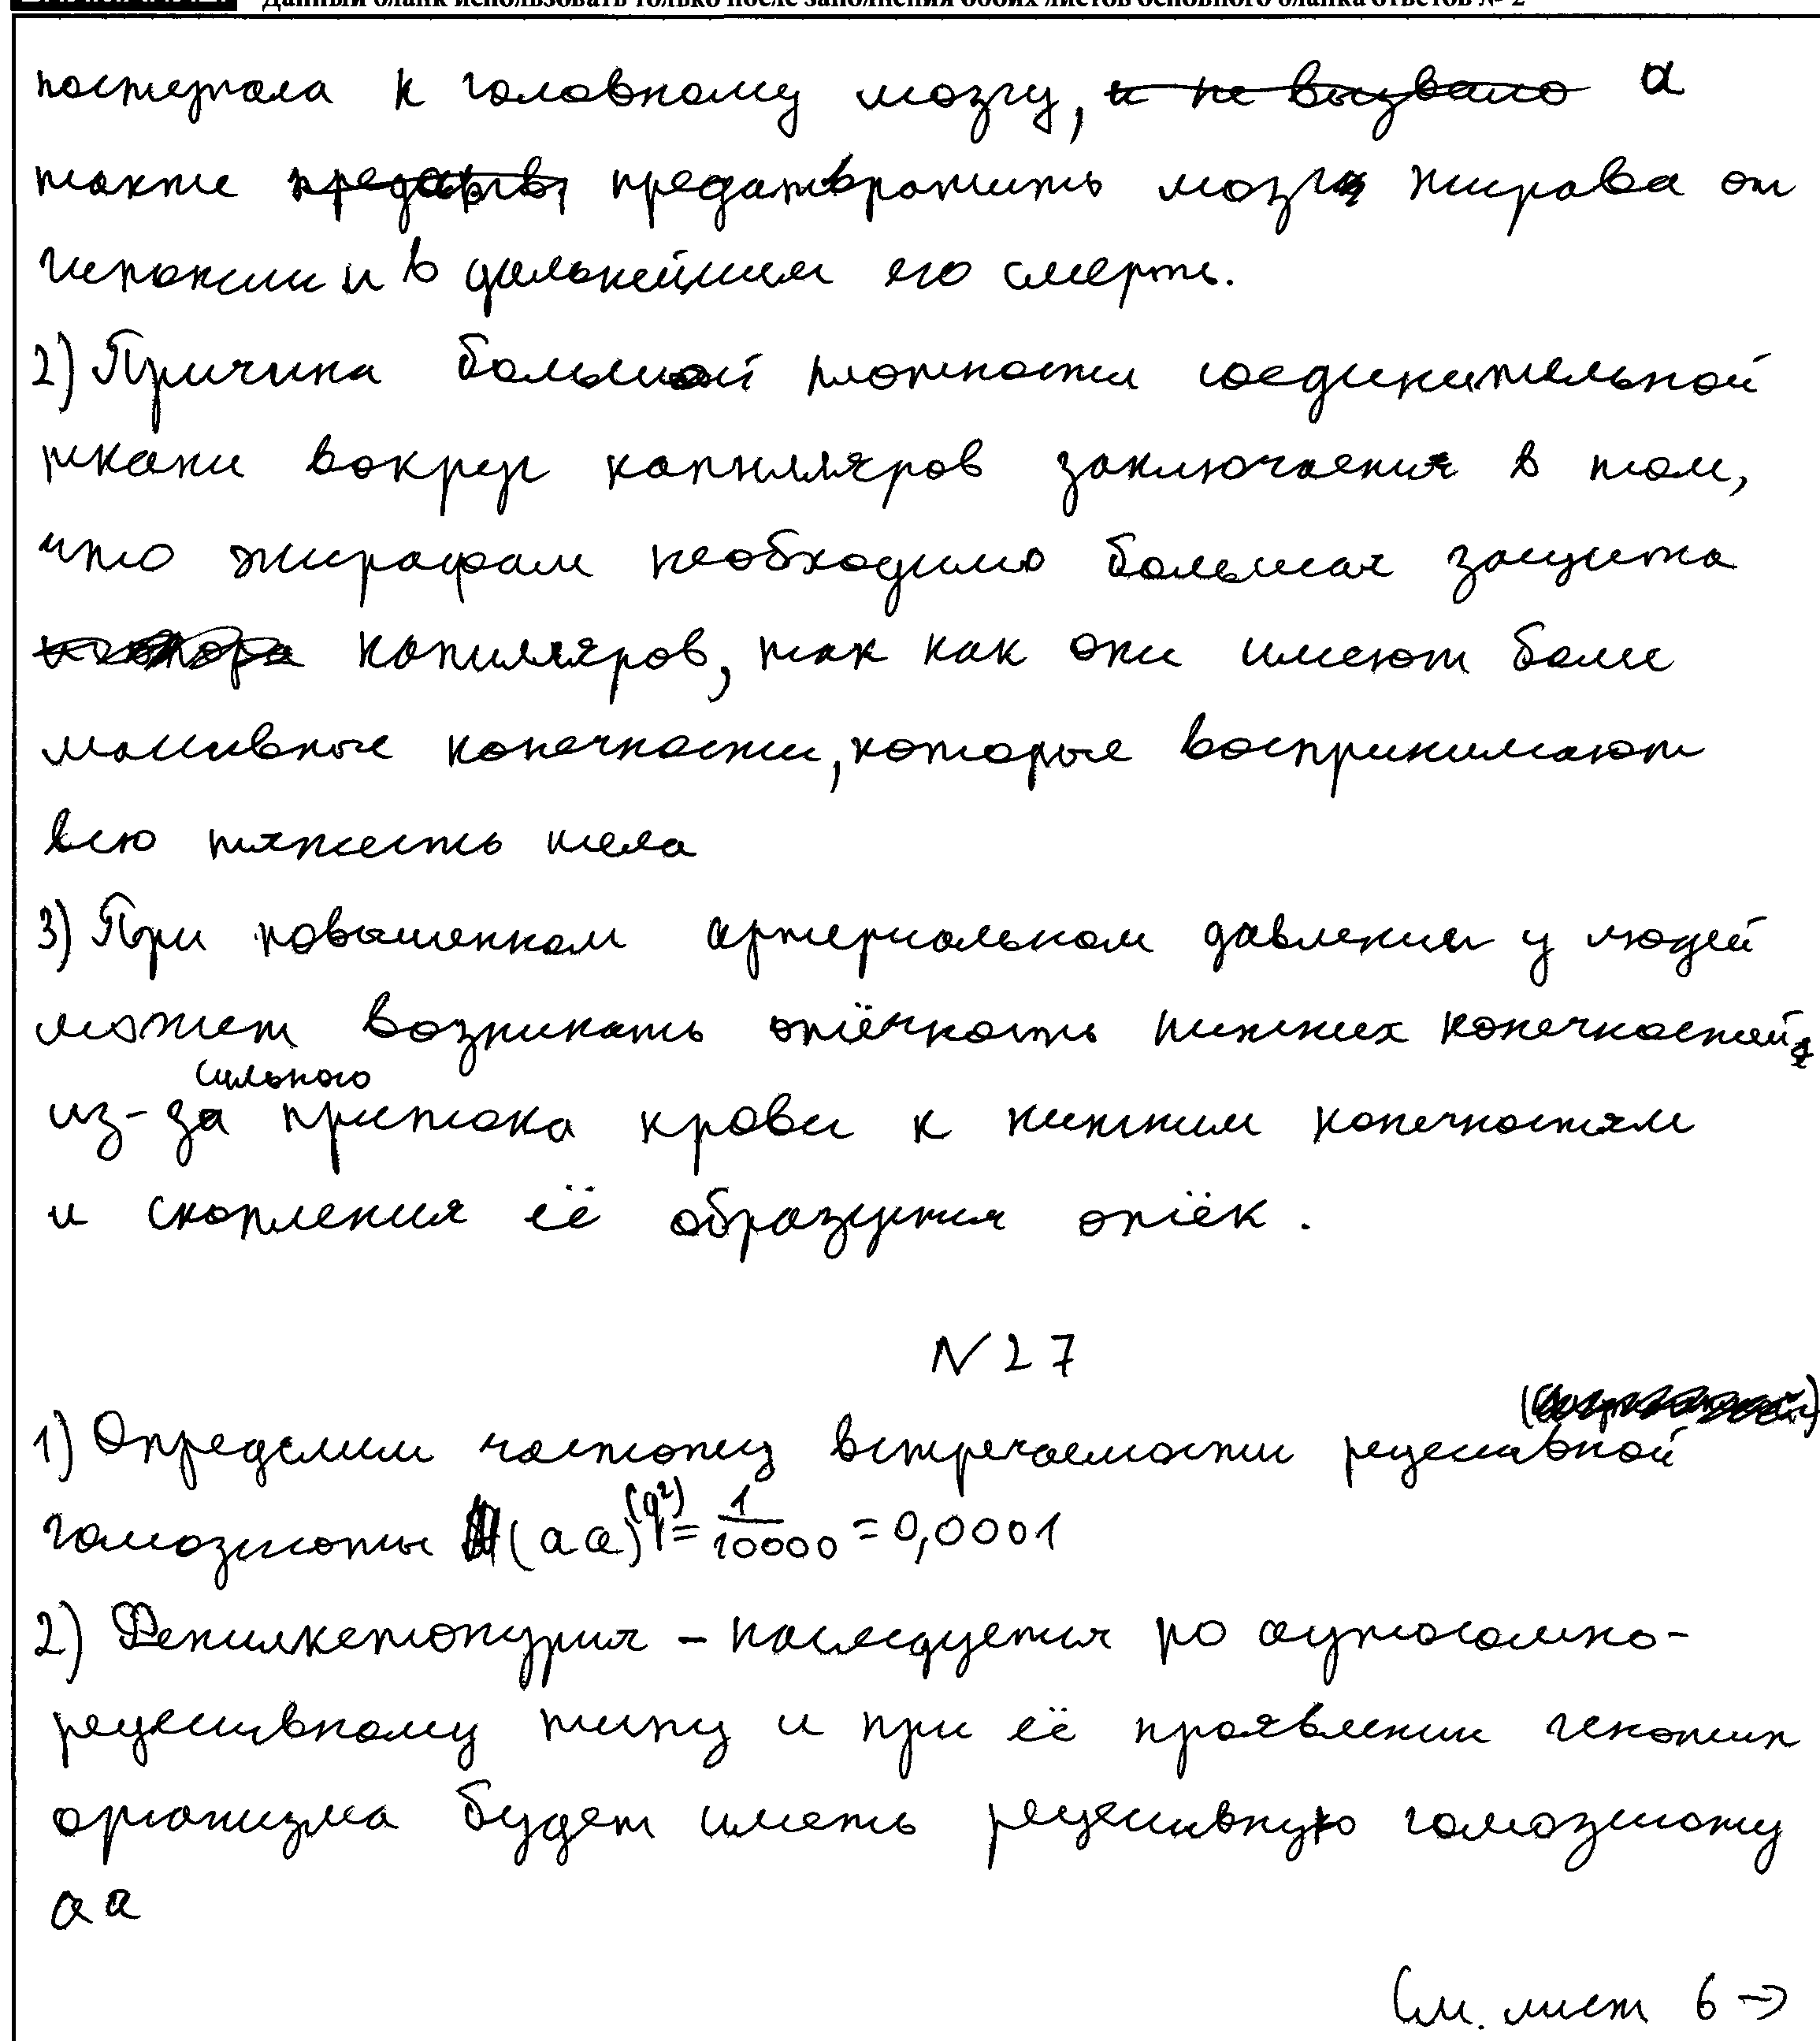 Данный бланк использовать только после заполнения обоих листов основного бланка ответов № 2
поступала к головному мозгу, и не вызвало а
также предотвратить мозг жирафа от
гипоксии и в дальнейшем его смерть.
2) Причина большой плотности соединительной
ткани вокруг капилляров заключается в том,
что жирафам необходимо большая защита
капилляров, так как они имеют более
массивные конечности, которые воспринимают
всю тяжесть тела
3) При повышенном артериальном давлении у людей
может возникать отёчность нижних конечностей,
сильного
из-за притока крови к нижним конечностям
и скопления её образуется отёк.
N 27
1) Определим частоту встречаемости рецессивной
гомозиготы (aa) (q²) = 1/10000 = 0,0001
2) Фенилкетонурия - наследуется по аутосомно-
рецессивному типу и при её проявлении генотип
организма будет иметь рецессивную гомозиготу
aa
См. лист 6 →